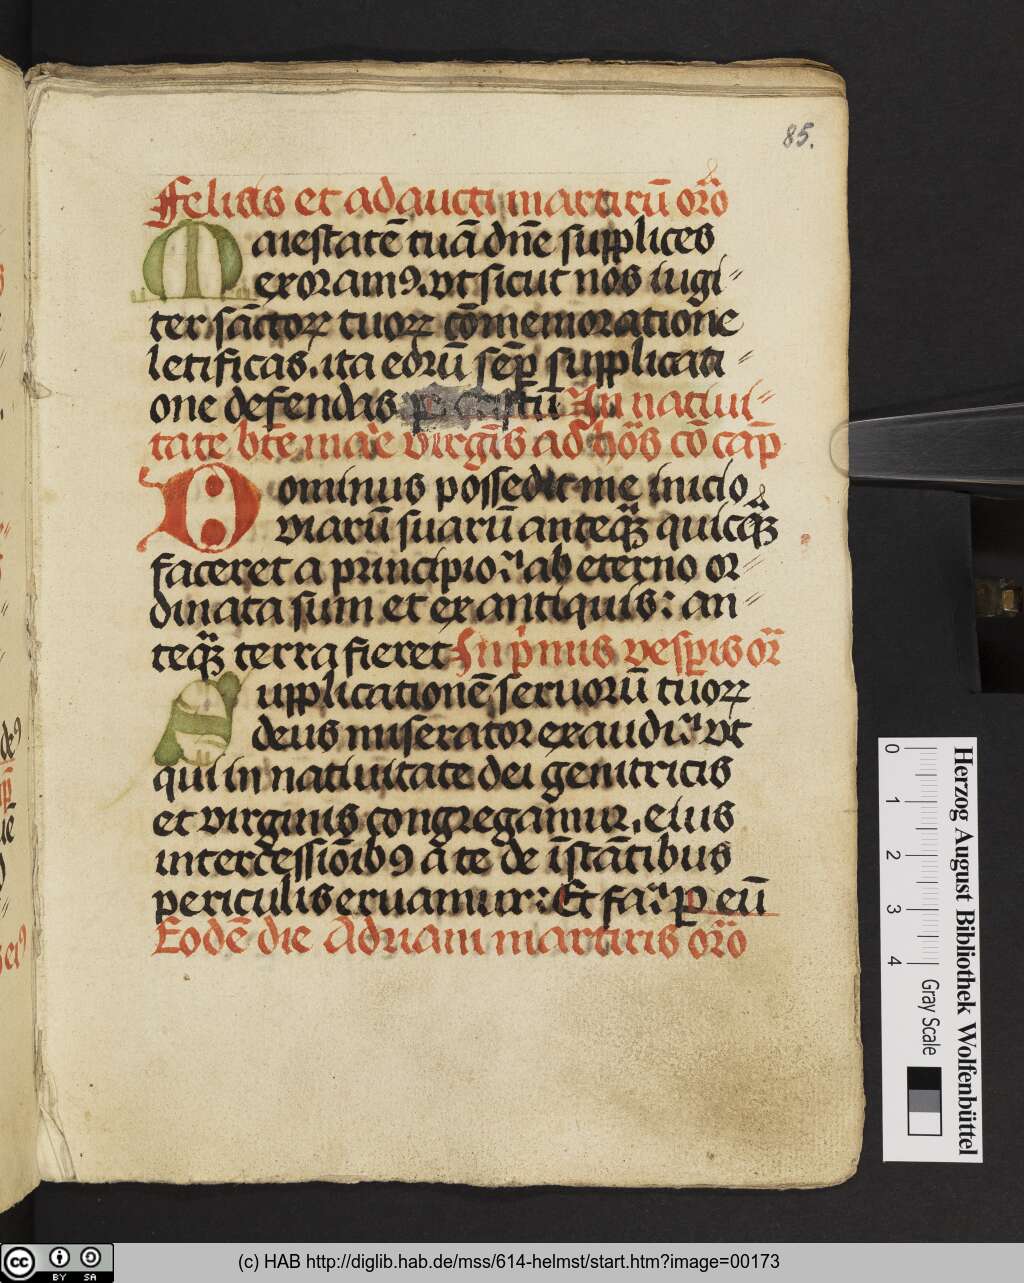 85.
Felicis et adaucti martirū or̄o
Maiestatē tuā dn̄e supplices
exoramꝯ. vt sicut nos iugi〃
ter sāctoꝝ tuoꝝ cōmemoratione
letificas. ita eorū sēꝑ supplicati〃
one defendas In natiui〃
tate bt̄e marie virgīs ad hōs cō cap̄
Dominus possedit me inicio
viarū suarū anteqꝫ quicqꝫ
faceret a principio: ab eterno or〃
dinata sum et ex antiquis: an〃
teqꝫ terra fieret In pͥmis vesꝑis or̄
Supplicationē seruorū tuoꝝ
deus miserator exaudi: vt
qui in natiuitate dei genitricis
et virginis congregamur. eius
intercessiōibꝯ a te de īstātibus
periculis eruamur: Et fa: ꝑ eū
Eodē die Adriani martiris or̄o
0 1 2 3 4
Gray Scale
Herzog August Bibliothek Wolfenbüttel
cc BY SA
(c) HAB http://diglib.hab.de/mss/614-helmst/start.htm?image=00173